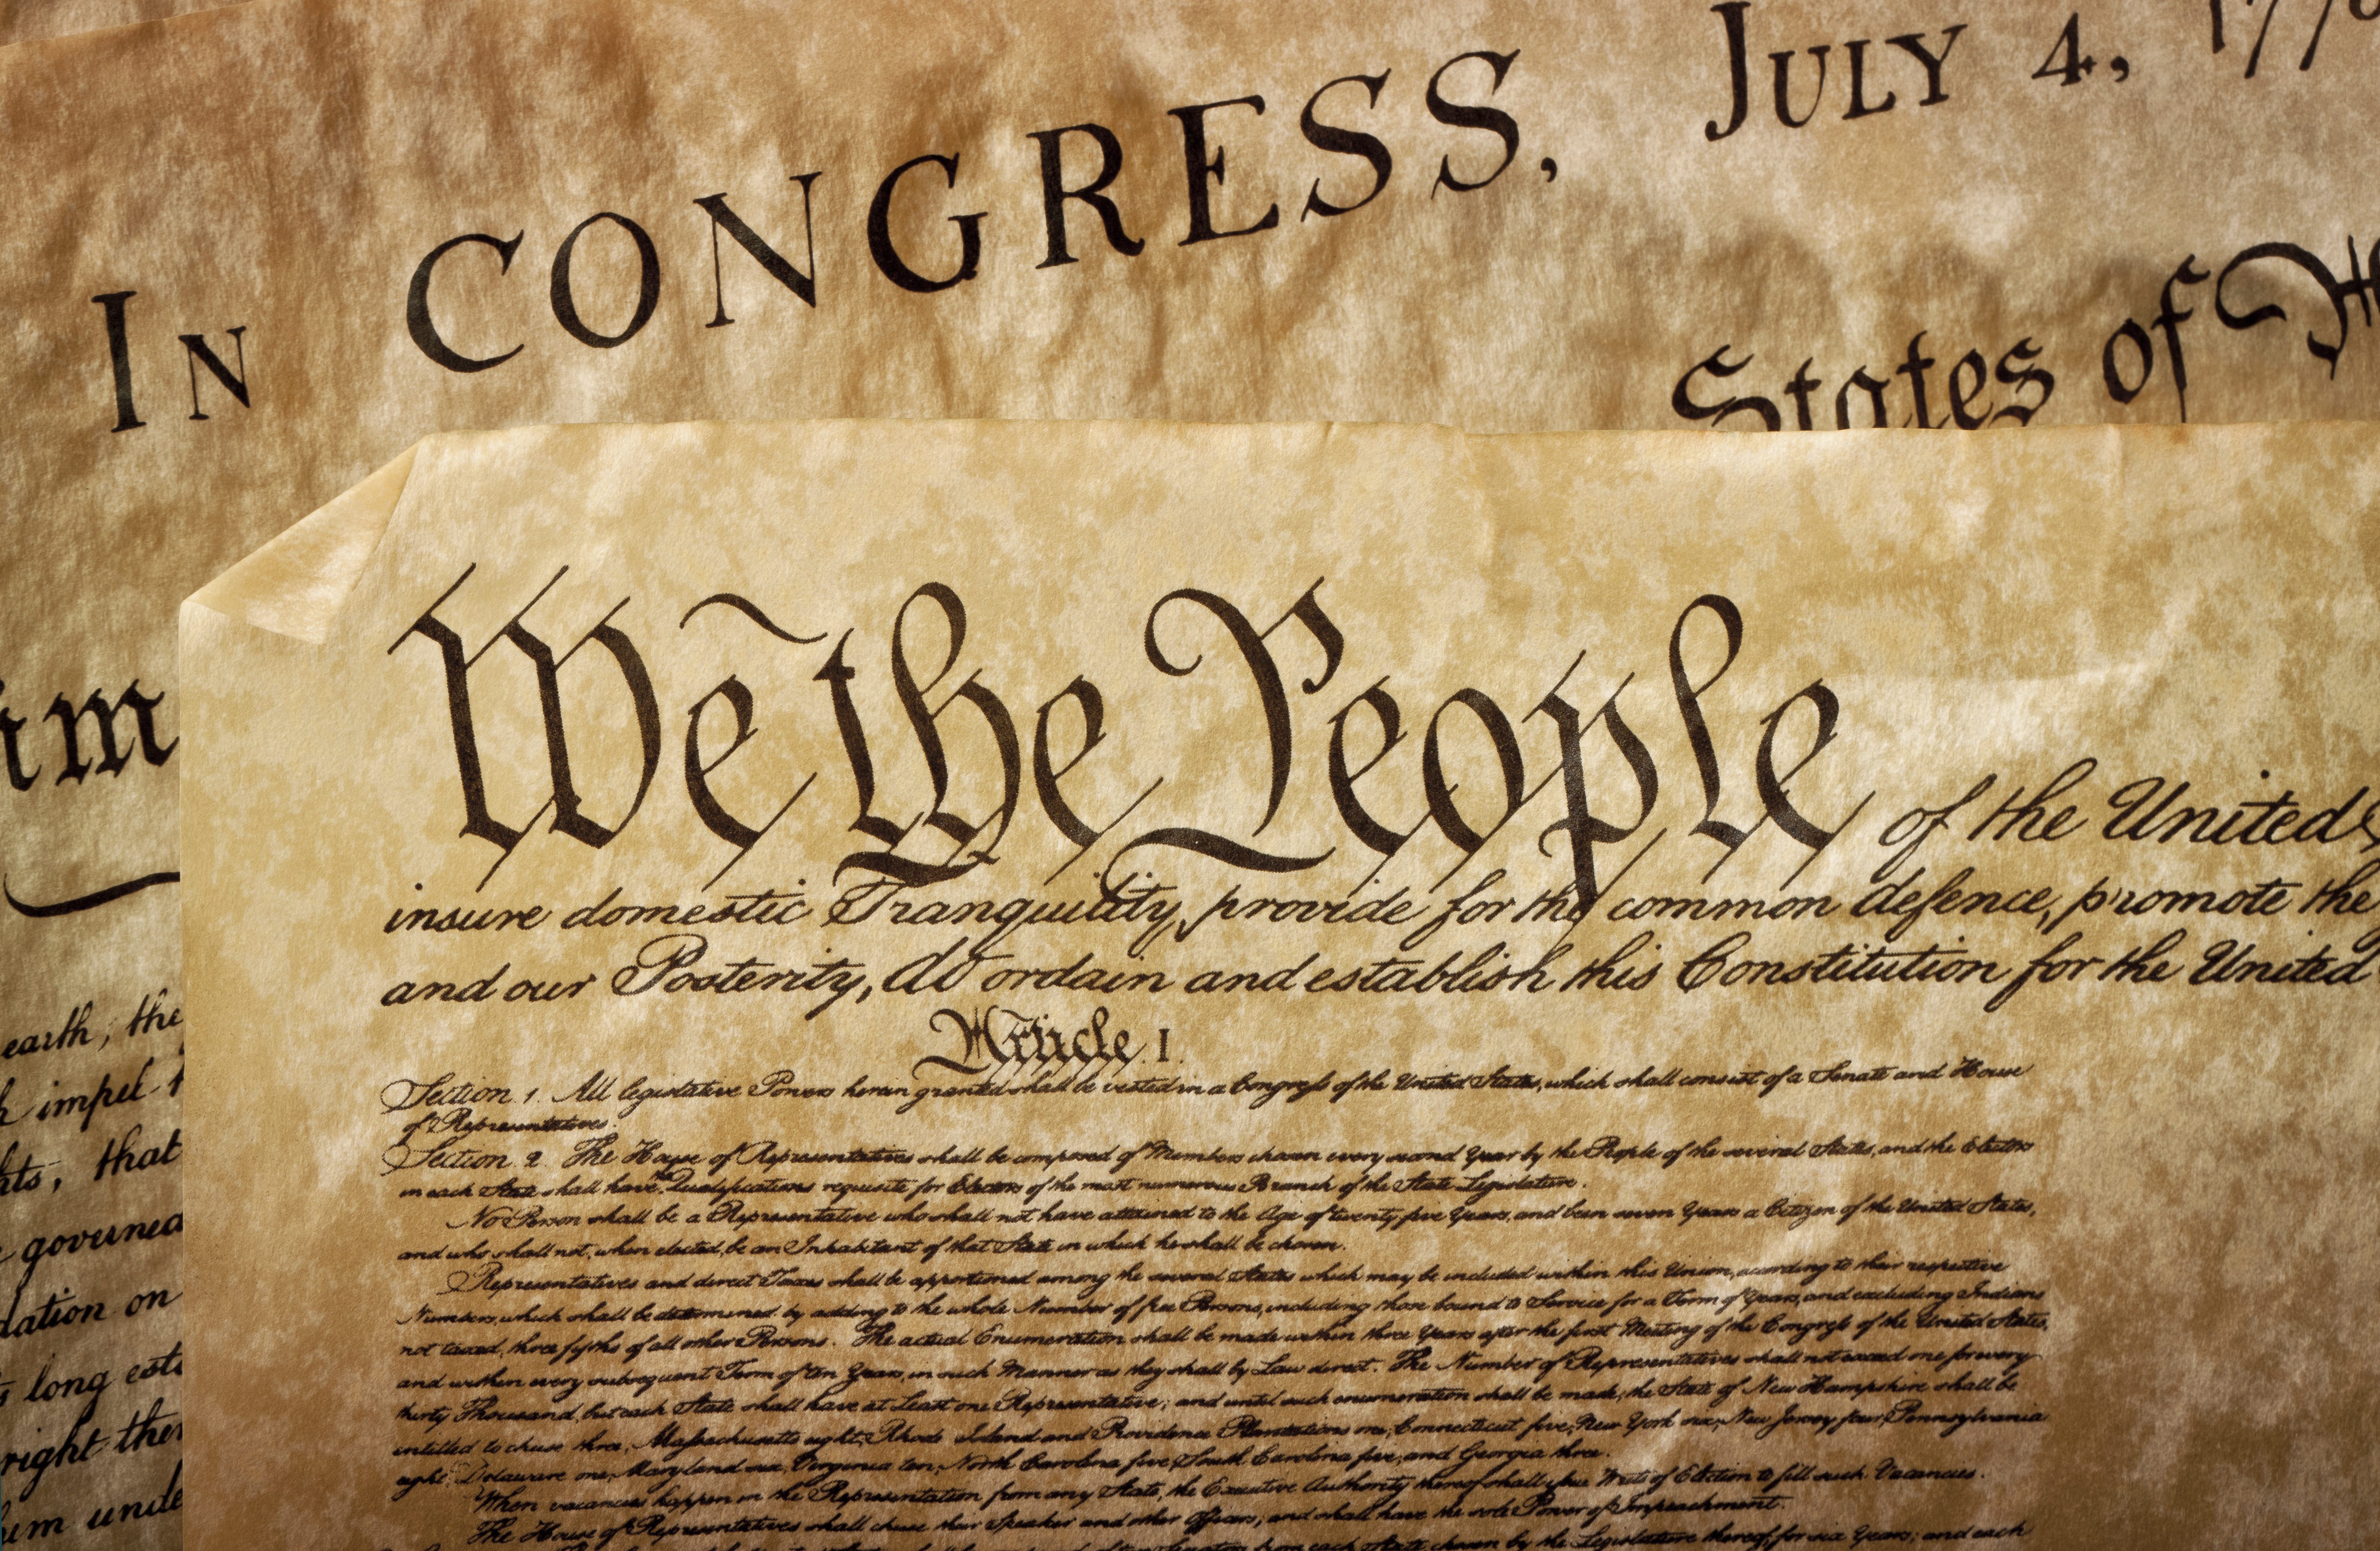 IN CONGRESS, JULY 4, 177
States of
im
earth, the
impel
hts, that
governed
dation on
long esta
right
um unde
We the People of the United
insure domestic Tranquility, provide for the common defence, promote the
and our Posterity, do ordain and establish this Constitution for the United
Article. I.
Section. 1. All legislative Powers herein granted shall be vested in a Congress of the United States, which shall consist of a Senate and House
of Representatives.
Section. 2. The House of Representatives shall be composed of Members chosen every second Year by the People of the several States, and the Electors
in each State shall have the Qualifications requisite for Electors of the most numerous Branch of the State Legislature.
No Person shall be a Representative who shall not have attained to the Age of twenty five Years, and been seven Years a Citizen of the United States,
and who shall not, when elected, be an Inhabitant of that State in which he shall be chosen.
Representatives and direct Taxes shall be apportioned among the several States which may be included within this Union, according to their respective
Numbers, which shall be determined by adding to the whole Number of free Persons, including those bound to Service for a Term of Years, and excluding Indians
not taxed, three fifths of all other Persons. The actual Enumeration shall be made within three Years after the first Meeting of the Congress of the United States,
and within every subsequent Term of ten Years, in such Manner as they shall by Law direct. The Number of Representatives shall not exceed one for every
thirty Thousand, but each State shall have at Least one Representative; and until such enumeration shall be made, the State of New Hampshire shall be
entitled to chuse three, Massachusetts eight, Rhode Island and Providence Plantations one, Connecticut five, New York six, New Jersey four, Pennsylvania
eight, Delaware one, Maryland six, Virginia ten, North Carolina five, South Carolina five, and Georgia three.
When vacancies happen in the Representation from any State, the Executive Authority thereof shall issue Writs of Election to fill such Vacancies.
The House of Representatives shall chuse their Speaker and other Officers; and shall have the sole Power of Impeachment.
from each State chosen by the Legislature thereof, for six Years; and each